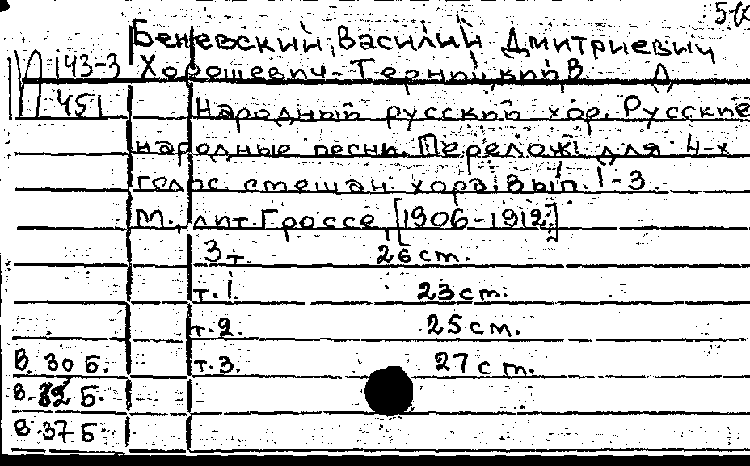 Беневский, Василий Дмитриевич
143-3 Хорошевич-Терницкий, В
451 Народный русский хор. Русские
народные песни. Перелож. для 4-х
голос. смешан. хора. Вып. 1-3.
М., лит. Гроссе, [1906-1912].
3 т. 26 см.
т. 1. 23 см.
т. 2. 25 см.
В 30 Б. т. 3. 27 см.
В. 32 Б.
В 37 Б